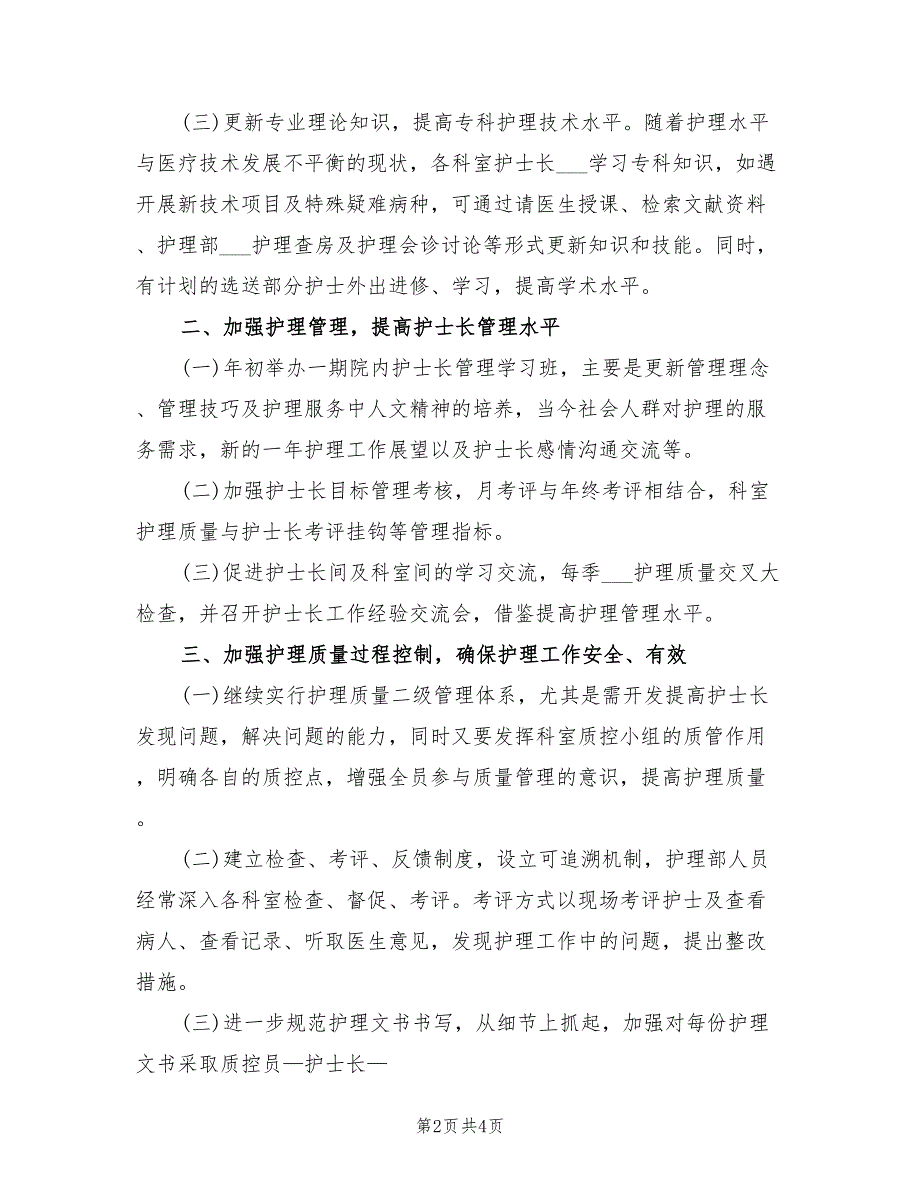 (三)更新专业理论知识，提高专科护理技术水平。随着护理水平
与医疗技术发展不平衡的现状，各科室护士长___学习专科知识，如遇
开展新技术项目及特殊疑难病种，可通过请医生授课、检索文献资料
、护理部___护理查房及护理会诊讨论等形式更新知识和技能。同时，
有计划的选送部分护士外出进修、学习，提高学术水平。
二、加强护理管理，提高护士长管理水平
(一)年初举办一期院内护士长管理学习班，主要是更新管理理念
、管理技巧及护理服务中人文精神的培养，当今社会人群对护理的服
务需求，新的一年护理工作展望以及护士长感情沟通交流等。
(二)加强护士长目标管理考核，月考评与年终考评相结合，科室
护理质量与护士长考评挂钩等管理指标。
(三)促进护士长间及科室间的学习交流，每季___护理质量交叉大
检查，并召开护士长工作经验交流会，借鉴提高护理管理水平。
三、加强护理质量过程控制，确保护理工作安全、有效
(一)继续实行护理质量二级管理体系，尤其是需开发提高护士长
发现问题，解决问题的能力，同时又要发挥科室质控小组的质管作用
，明确各自的质控点，增强全员参与质量管理的意识，提高护理质量
。
(二)建立检查、考评、反馈制度，设立可追溯机制，护理部人员
经常深入各科室检查、督促、考评。考评方式以现场考评护士及查看
病人、查看记录、听取医生意见，发现护理工作中的问题，提出整改
措施。
(三)进一步规范护理文书书写，从细节上抓起，加强对每份护理
文书采取质控员—护士长—
第2页共4页